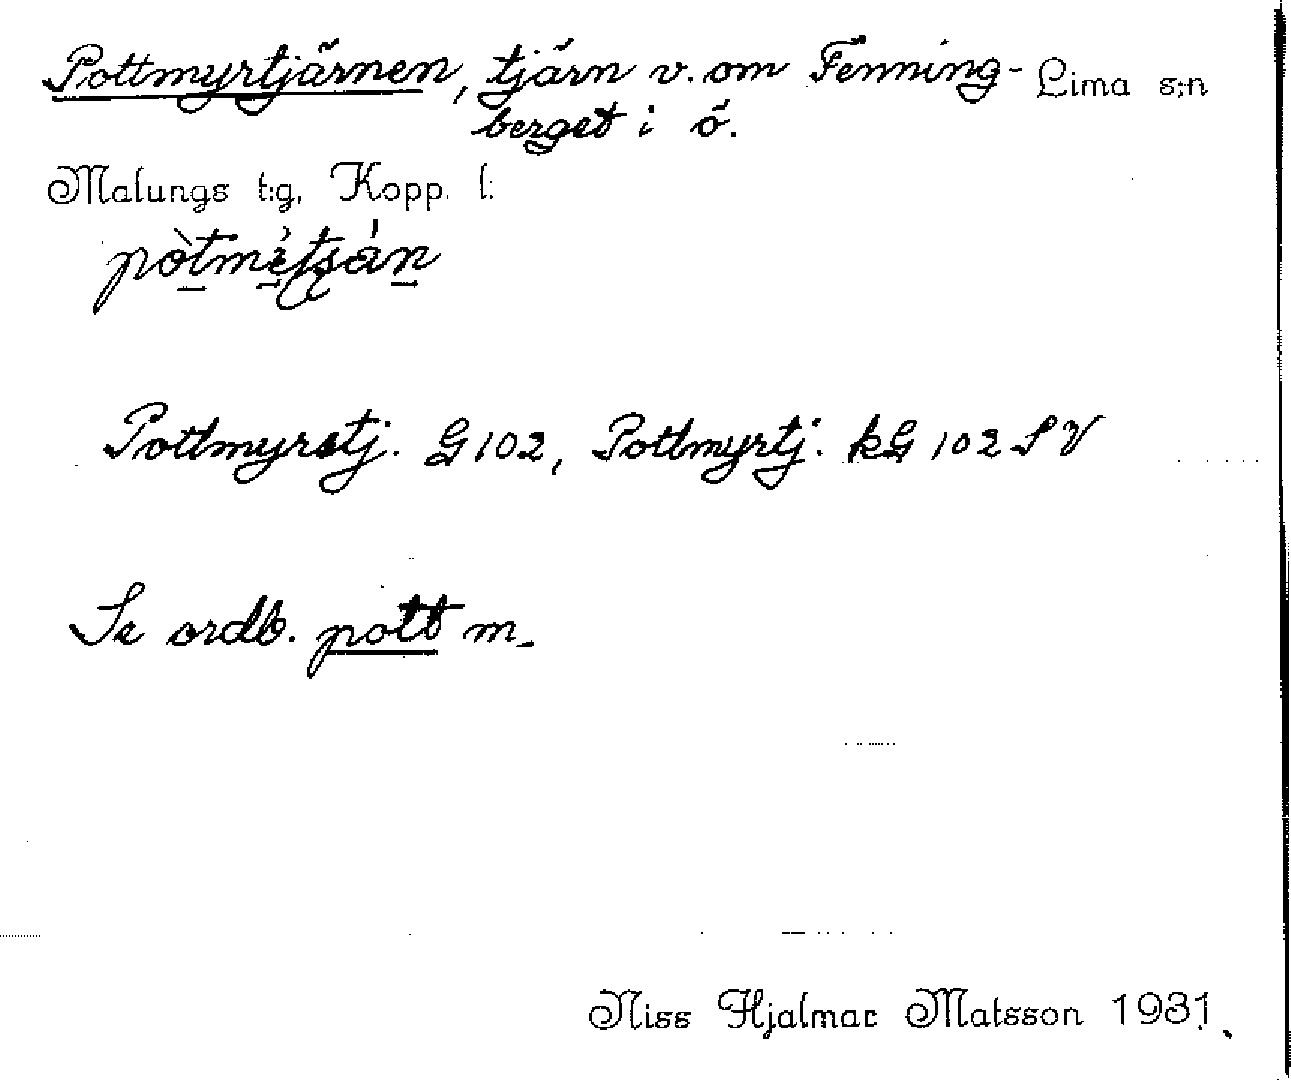 Pottmyrtjärnen, tjärn v. om Fenning- Lima s:n
berget i ö.
Malungs t:g, Kopp. l:
Pottmyrstj. G 102, Pottmyrtj. kG 102 SV
Se ordb. pott m.
Niss Hjalmar Matsson 1931.